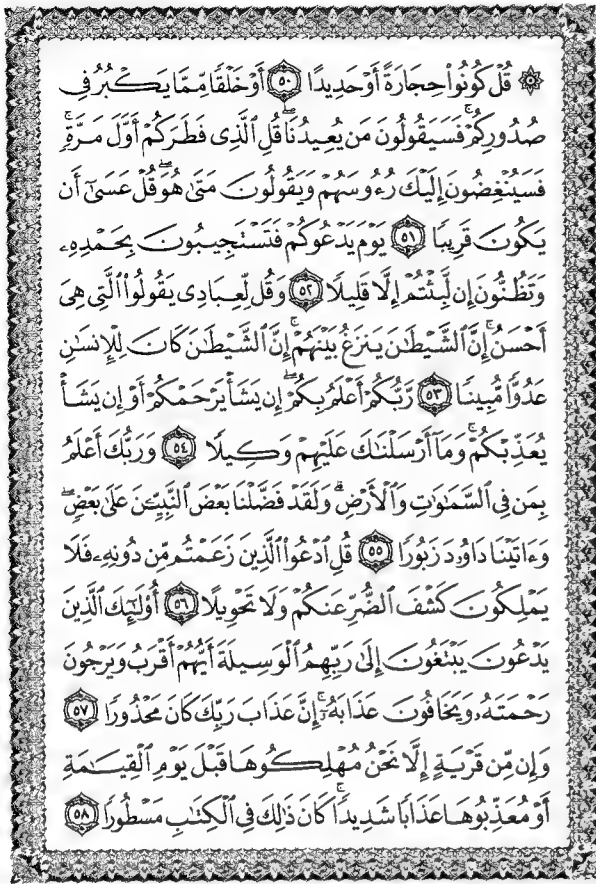 ۞ قُلْ كُونُوا۟ حِجَارَةً أَوْ حَدِيدًا ۝٥٠ أَوْ خَلْقًا مِّمَّا يَكْبُرُ فِى
صُدُورِكُمْ ۚ فَسَيَقُولُونَ مَن يُعِيدُنَا ۖ قُلِ ٱلَّذِى فَطَرَكُمْ أَوَّلَ مَرَّةٍ ۚ
فَسَيُنْغِضُونَ إِلَيْكَ رُءُوسَهُمْ وَيَقُولُونَ مَتَىٰ هُوَ ۖ قُلْ عَسَىٰٓ أَن
يَكُونَ قَرِيبًا ۝٥١ يَوْمَ يَدْعُوكُمْ فَتَسْتَجِيبُونَ بِحَمْدِهِۦ
وَتَظُنُّونَ إِن لَّبِثْتُمْ إِلَّا قَلِيلًا ۝٥٢ وَقُل لِّعِبَادِى يَقُولُوا۟ ٱلَّتِى هِىَ
أَحْسَنُ ۚ إِنَّ ٱلشَّيْطَـٰنَ يَنزَغُ بَيْنَهُمْ ۚ إِنَّ ٱلشَّيْطَـٰنَ كَانَ لِلْإِنسَـٰنِ
عَدُوًّا مُّبِينًا ۝٥٣ رَّبُّكُمْ أَعْلَمُ بِكُمْ ۖ إِن يَشَأْ يَرْحَمْكُمْ أَوْ إِن يَشَأْ
يُعَذِّبْكُمْ ۚ وَمَآ أَرْسَلْنَـٰكَ عَلَيْهِمْ وَكِيلًا ۝٥٤ وَرَبُّكَ أَعْلَمُ
بِمَن فِى ٱلسَّمَـٰوَٰتِ وَٱلْأَرْضِ ۗ وَلَقَدْ فَضَّلْنَا بَعْضَ ٱلنَّبِيِّـۧنَ عَلَىٰ بَعْضٍ ۖ
وَءَاتَيْنَا دَاوُۥدَ زَبُورًا ۝٥٥ قُلِ ٱدْعُوا۟ ٱلَّذِينَ زَعَمْتُم مِّن دُونِهِۦ فَلَا
يَمْلِكُونَ كَشْفَ ٱلضُّرِّ عَنكُمْ وَلَا تَحْوِيلًا ۝٥٦ أُو۟لَـٰٓئِكَ ٱلَّذِينَ
يَدْعُونَ يَبْتَغُونَ إِلَىٰ رَبِّهِمُ ٱلْوَسِيلَةَ أَيُّهُمْ أَقْرَبُ وَيَرْجُونَ
رَحْمَتَهُۥ وَيَخَافُونَ عَذَابَهُۥٓ ۚ إِنَّ عَذَابَ رَبِّكَ كَانَ مَحْذُورًا ۝٥٧
وَإِن مِّن قَرْيَةٍ إِلَّا نَحْنُ مُهْلِكُوهَا قَبْلَ يَوْمِ ٱلْقِيَـٰمَةِ
أَوْ مُعَذِّبُوهَا عَذَابًا شَدِيدًا ۚ كَانَ ذَٰلِكَ فِى ٱلْكِتَـٰبِ مَسْطُورًا ۝٥٨